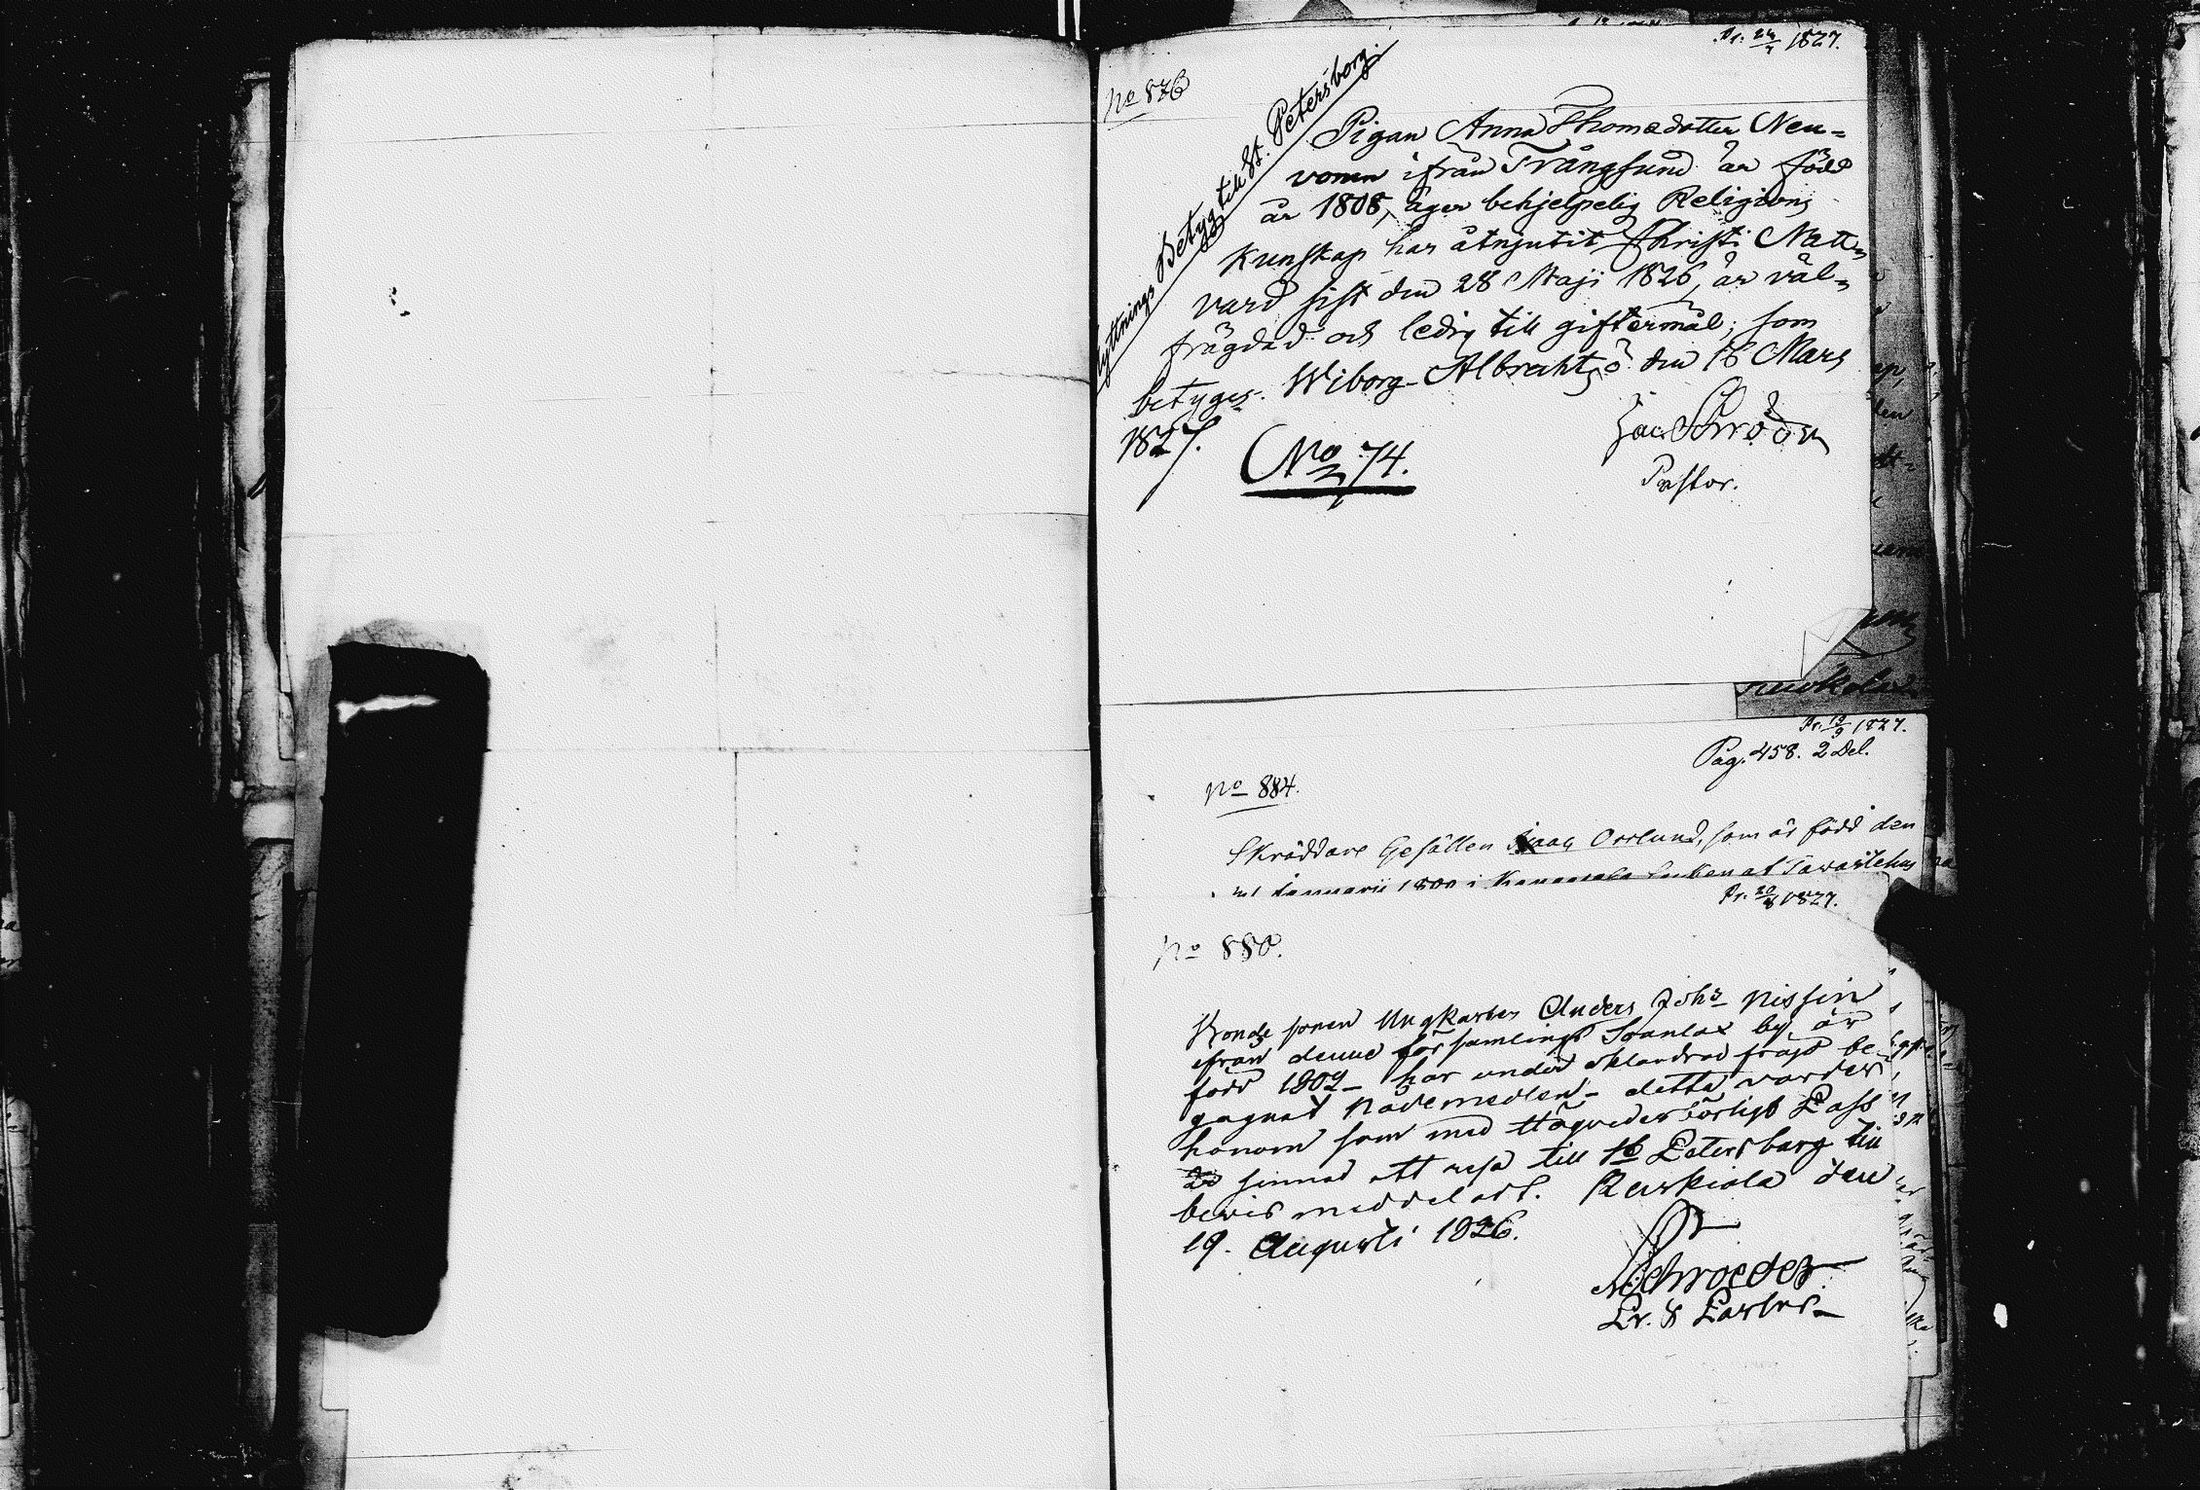 Pr. 24/4 1827.
No 876
Flyttnings Betyg till St. Petersborg.
Pigan Anna Thomedotter Neu=
vonen ifrån Trångsund är född
år 1808, äger behjelpelig Religions
Kunskap har åtnjutit Christi Natt=
vard sist den 28 Maji 1826, är väl=
frägdad och ledig till giftermål; som
betyges. Wiborg-Albrechtsö den 16 Mars
1827.
No 74.
Pastor.
Pr. 19/9 1827.
Pag. 458. 2 Del.
No 884.
Skräddare Gesällen Isaac Orrlund, som är född den
Januarii 1800 i Tawastehus
Pr. 20/8 1827.
No 880.
Bonde sonen Ungkarlen Anders Johs Nissin
ifrån denne församlings by, är
född 1802 – har under oklandrad frägd be-
gagnat Nådemedlen – detta varder
honom som med Högvederbörligt Pass
är sinnad att resa till St Petersburg till
bevis meddelat. Ruskiala den
19. Augusti 1826.
Schroeder